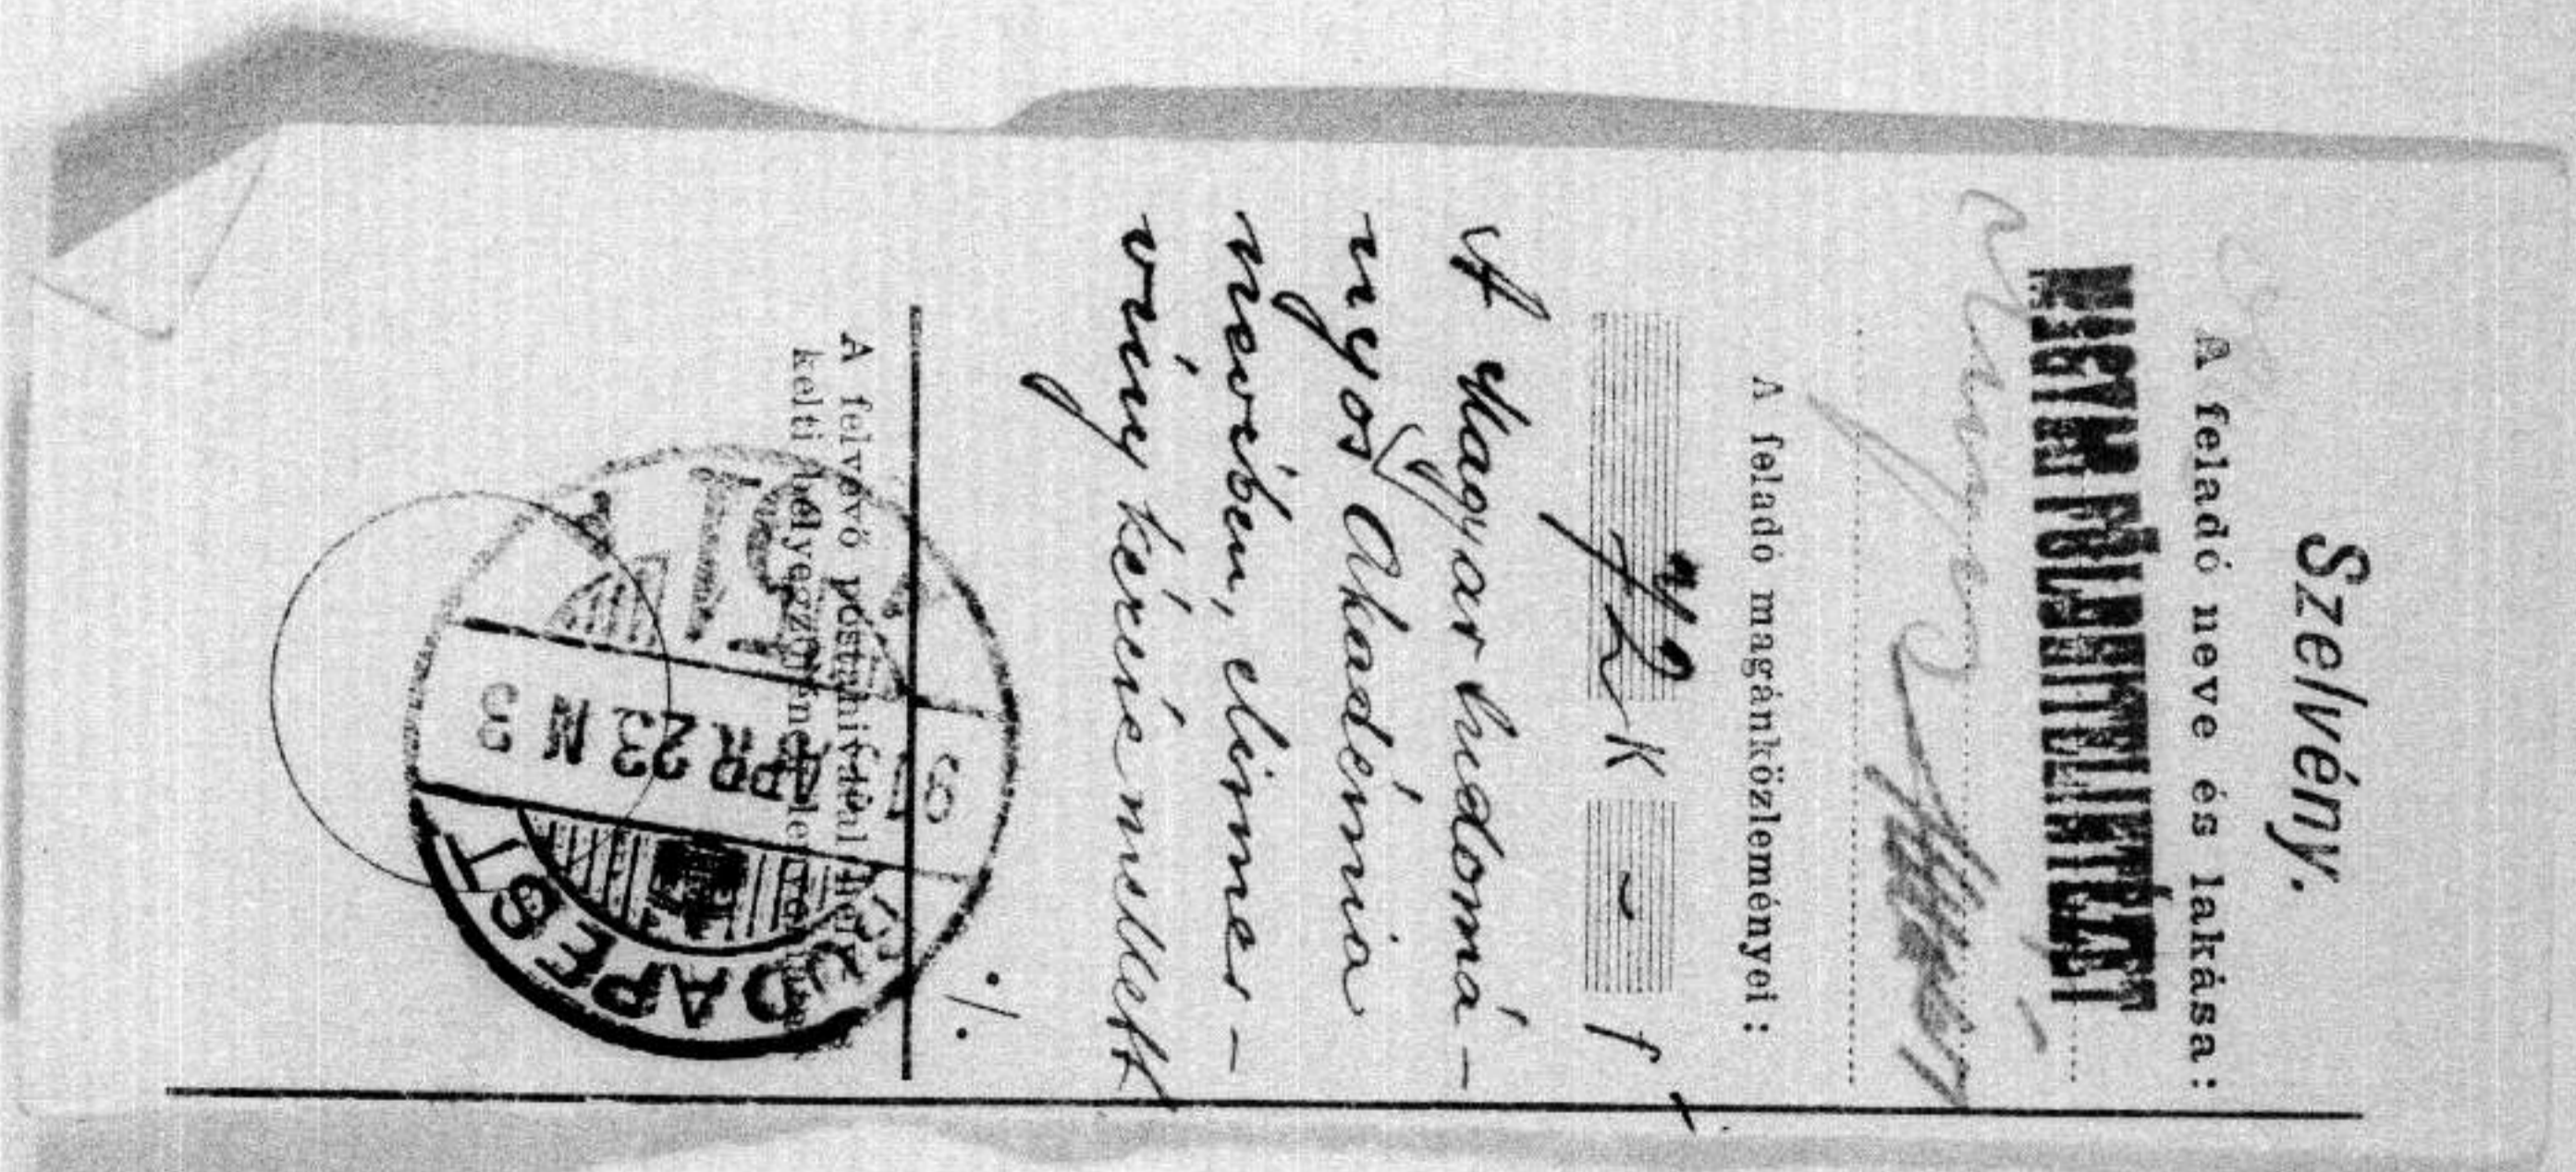 Szelvény.
A feladó neve és lakása:
MAGYAR FÖLDHITELINTÉZET
A feladó magánközleményei:
72 K — f
A Magyar tudomá-
nyos Akadémia
nevében, elismer-
vény kérése mellett
./.
A felvevő postahivatal
kelti bélyegző
BUDAPEST
APR 23 N 3